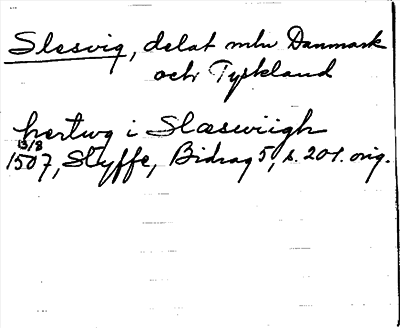 Slesvig, delat mln Danmark
och Tyskland
hertug i Slæswiigh
13/8
1507, Styffe, Bidrag 5, s. 201. orig.